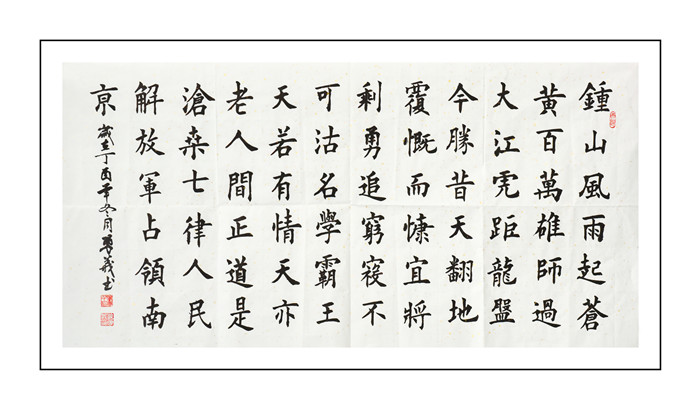 鍾山風雨起蒼
黃百萬雄師過
大江虎距龍盤
今勝昔天翻地
覆慨而慷宜將
剩勇追窮寇不
可沽名學霸王
天若有情天亦
老人間正道是
滄桒七律人民
解放軍占領南
亰
歲在丁酉年冬月義书